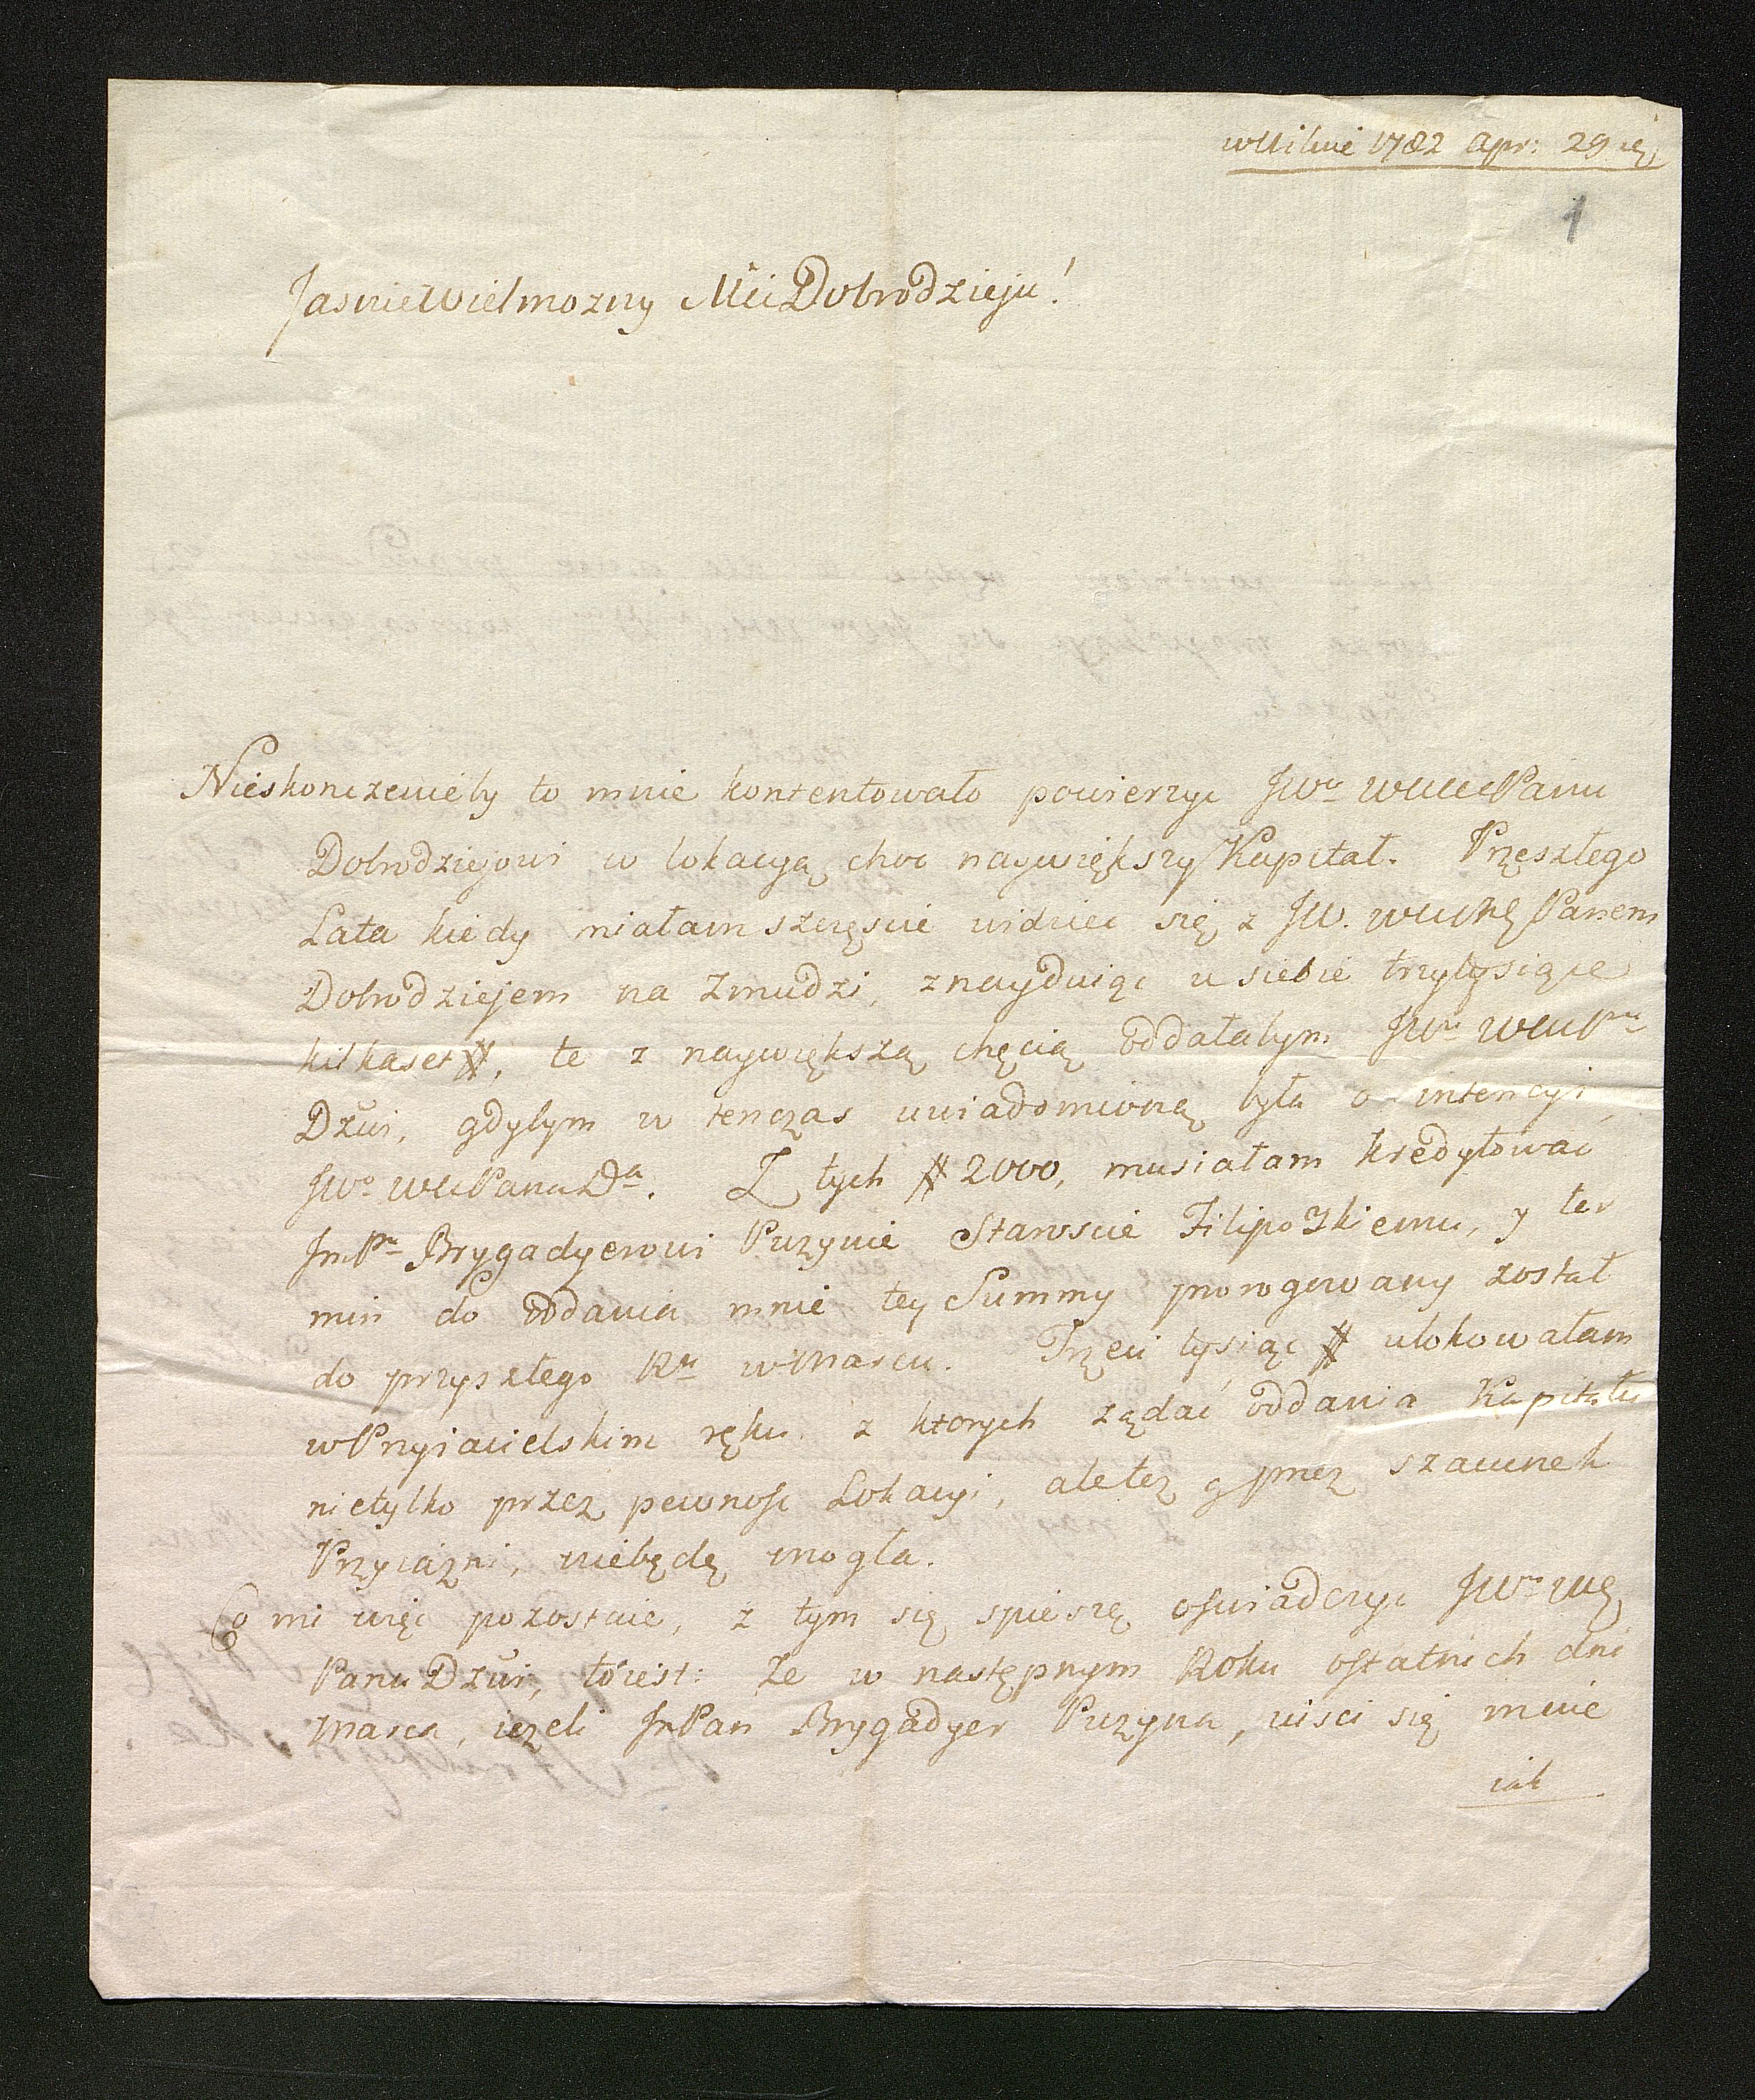 w Wilnie 1782 Apr: 29
1
Jasnie Wielmozny Mci Dobrodzieju!
Nieskonczenieby to mnie kontentowało powierzyc JWu WMM Panu
Dobrodziejowi w lokacyą choc naywiększy Kapitał. Przeszłego
Lata kiedy miałam szczęscie widziec się z JW. WMM Panem
Dobrodziejem na Zmudzi, znayduiąc u siebie trzytysiące
kilkaset #, te z naywiększą chęcią oddałabym JWu WMPu
Dzŭi, gdybym w tenczas uwiadomioną była o intencyi
JWo WM Pana Da. Z tych # 2000, musiałam kredytować
JmPu Brygadyerowi Puzynie Staroscie Filipozkiemu, y ter
min do oddania mnie tey Summy prorogowany został
do przyszłego Ru w Marcu. Trzeci tysiąc # ulokowałam
w Przyiacielskim ręku z ktorych ządać oddania Kapitału
nietylko przez pewnosc Lokacyi, aletez y przez szacunek
Przyiazni, niebędę mogła.
Co mi więc pozostaie, z tym się spieszę oswiadczyc JWu
Panu Dzŭi, tóiest: Ze w następnym Roku ostatnich dni
Marca, iezeli JmPan Brygadyer Puzyna, uisci się mnie
iak